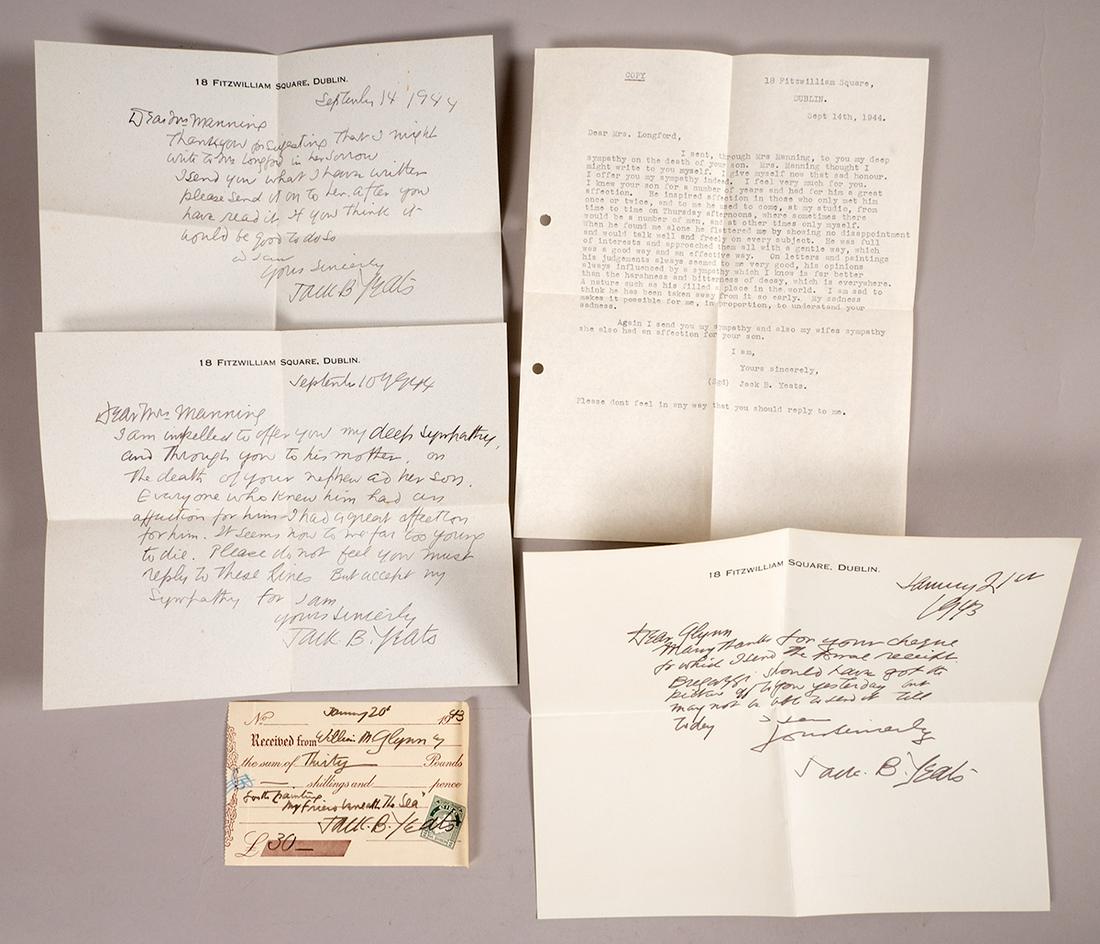 18 FITZWILLIAM SQUARE, DUBLIN.
September 14 1944
Dear Mrs Manning
Thank you for suggesting that I might
write to Mrs Longford in her sorrow
I send you what I have written
please send it on to her after you
have read it if you think it
would be good to do so
I am
yours sincerely
Jack B Yeats
18 FITZWILLIAM SQUARE, DUBLIN.
September 10 1944
Dear Mrs Manning
I am impelled to offer you my deep sympathy,
and through you to his mother, on
the death of your nephew ad her son.
Everyone who knew him had an
affection for him I had a great affection
for him. It seems now to me far too young
to die. Please do not feel you must
reply to these lines But accept my
sympathy for I am
yours sincerely
Jack. B. Yeats
No January 20th 1943
Received from William McGlynn
the sum of Thirty Pounds
shillings and pence
for the painting
"My Friend beneath the Sea"
Jack. B. Yeats
£ 30 —
COPY
18 Fitzwilliam Square,
DUBLIN.
Sept 14th, 1944.
Dear Mrs. Longford,
I sent, through Mrs Manning, to you my deep
sympathy on the death of your son. Mrs. Manning thought I
might write to you myself. I give myself now that sad honour.
I offer you my sympathy indeed. I feel very much for you.
I knew your son for a number of years and had for him a great
affection. He inspired affection in those who only met him
once or twice, and to me he used to come, at my studio, from
time to time on Thursday afternoons, where sometimes there
would be a number of men, and at other times only myself.
When he found me alone he flattered me by showing no disappointment
and would talk well and freely on every subject. He was full
of interests and approached them all with a gentle way, which
was a good way and an effective way. On letters and paintings
his judgements always seemed to me very good, his opinions
always influenced by a sympathy which I know is far better
than the harshness and bitterness of decay, which is everywhere.
A nature such as his filled a place in the world. I am sad to
think he has been taken away from it so early. My sadness
makes it possible for me, in proportion, to understand your
sadness.
Again I send you my sympathy and also my wifes sympathy
she also had an affection for your son.
I am,
Yours sincerely,
(Sgd) Jack B. Yeats.
Please dont feel in any way that you should reply to me.
18 FITZWILLIAM SQUARE, DUBLIN.
January 21st
1943
Dear Glynn
Many thanks for your cheque
for which I send the formal receipt
should have got the
picture off to you yesterday but
may not be able to send it till
today
I am
yours sincerely
Jack. B. Yeats